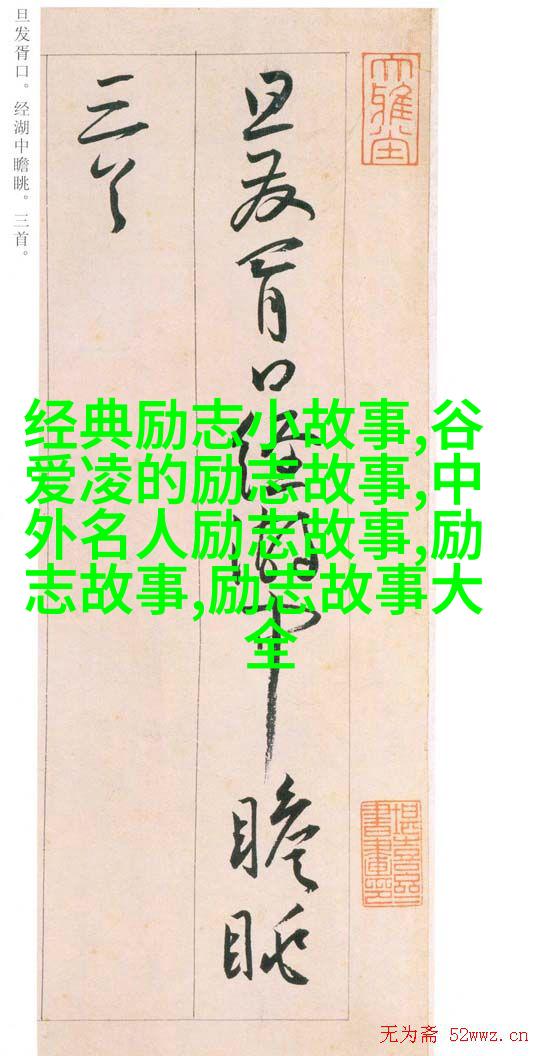 旦发胥口。经湖中瞻眺。三首。
旦发胥口经湖中瞻眺
三首
大雅室
经典励志小故事,谷
爱凌的励志故事,中
外名人励志故事,励
志故事,励志故事大
全
无为斋 52wwz.cn